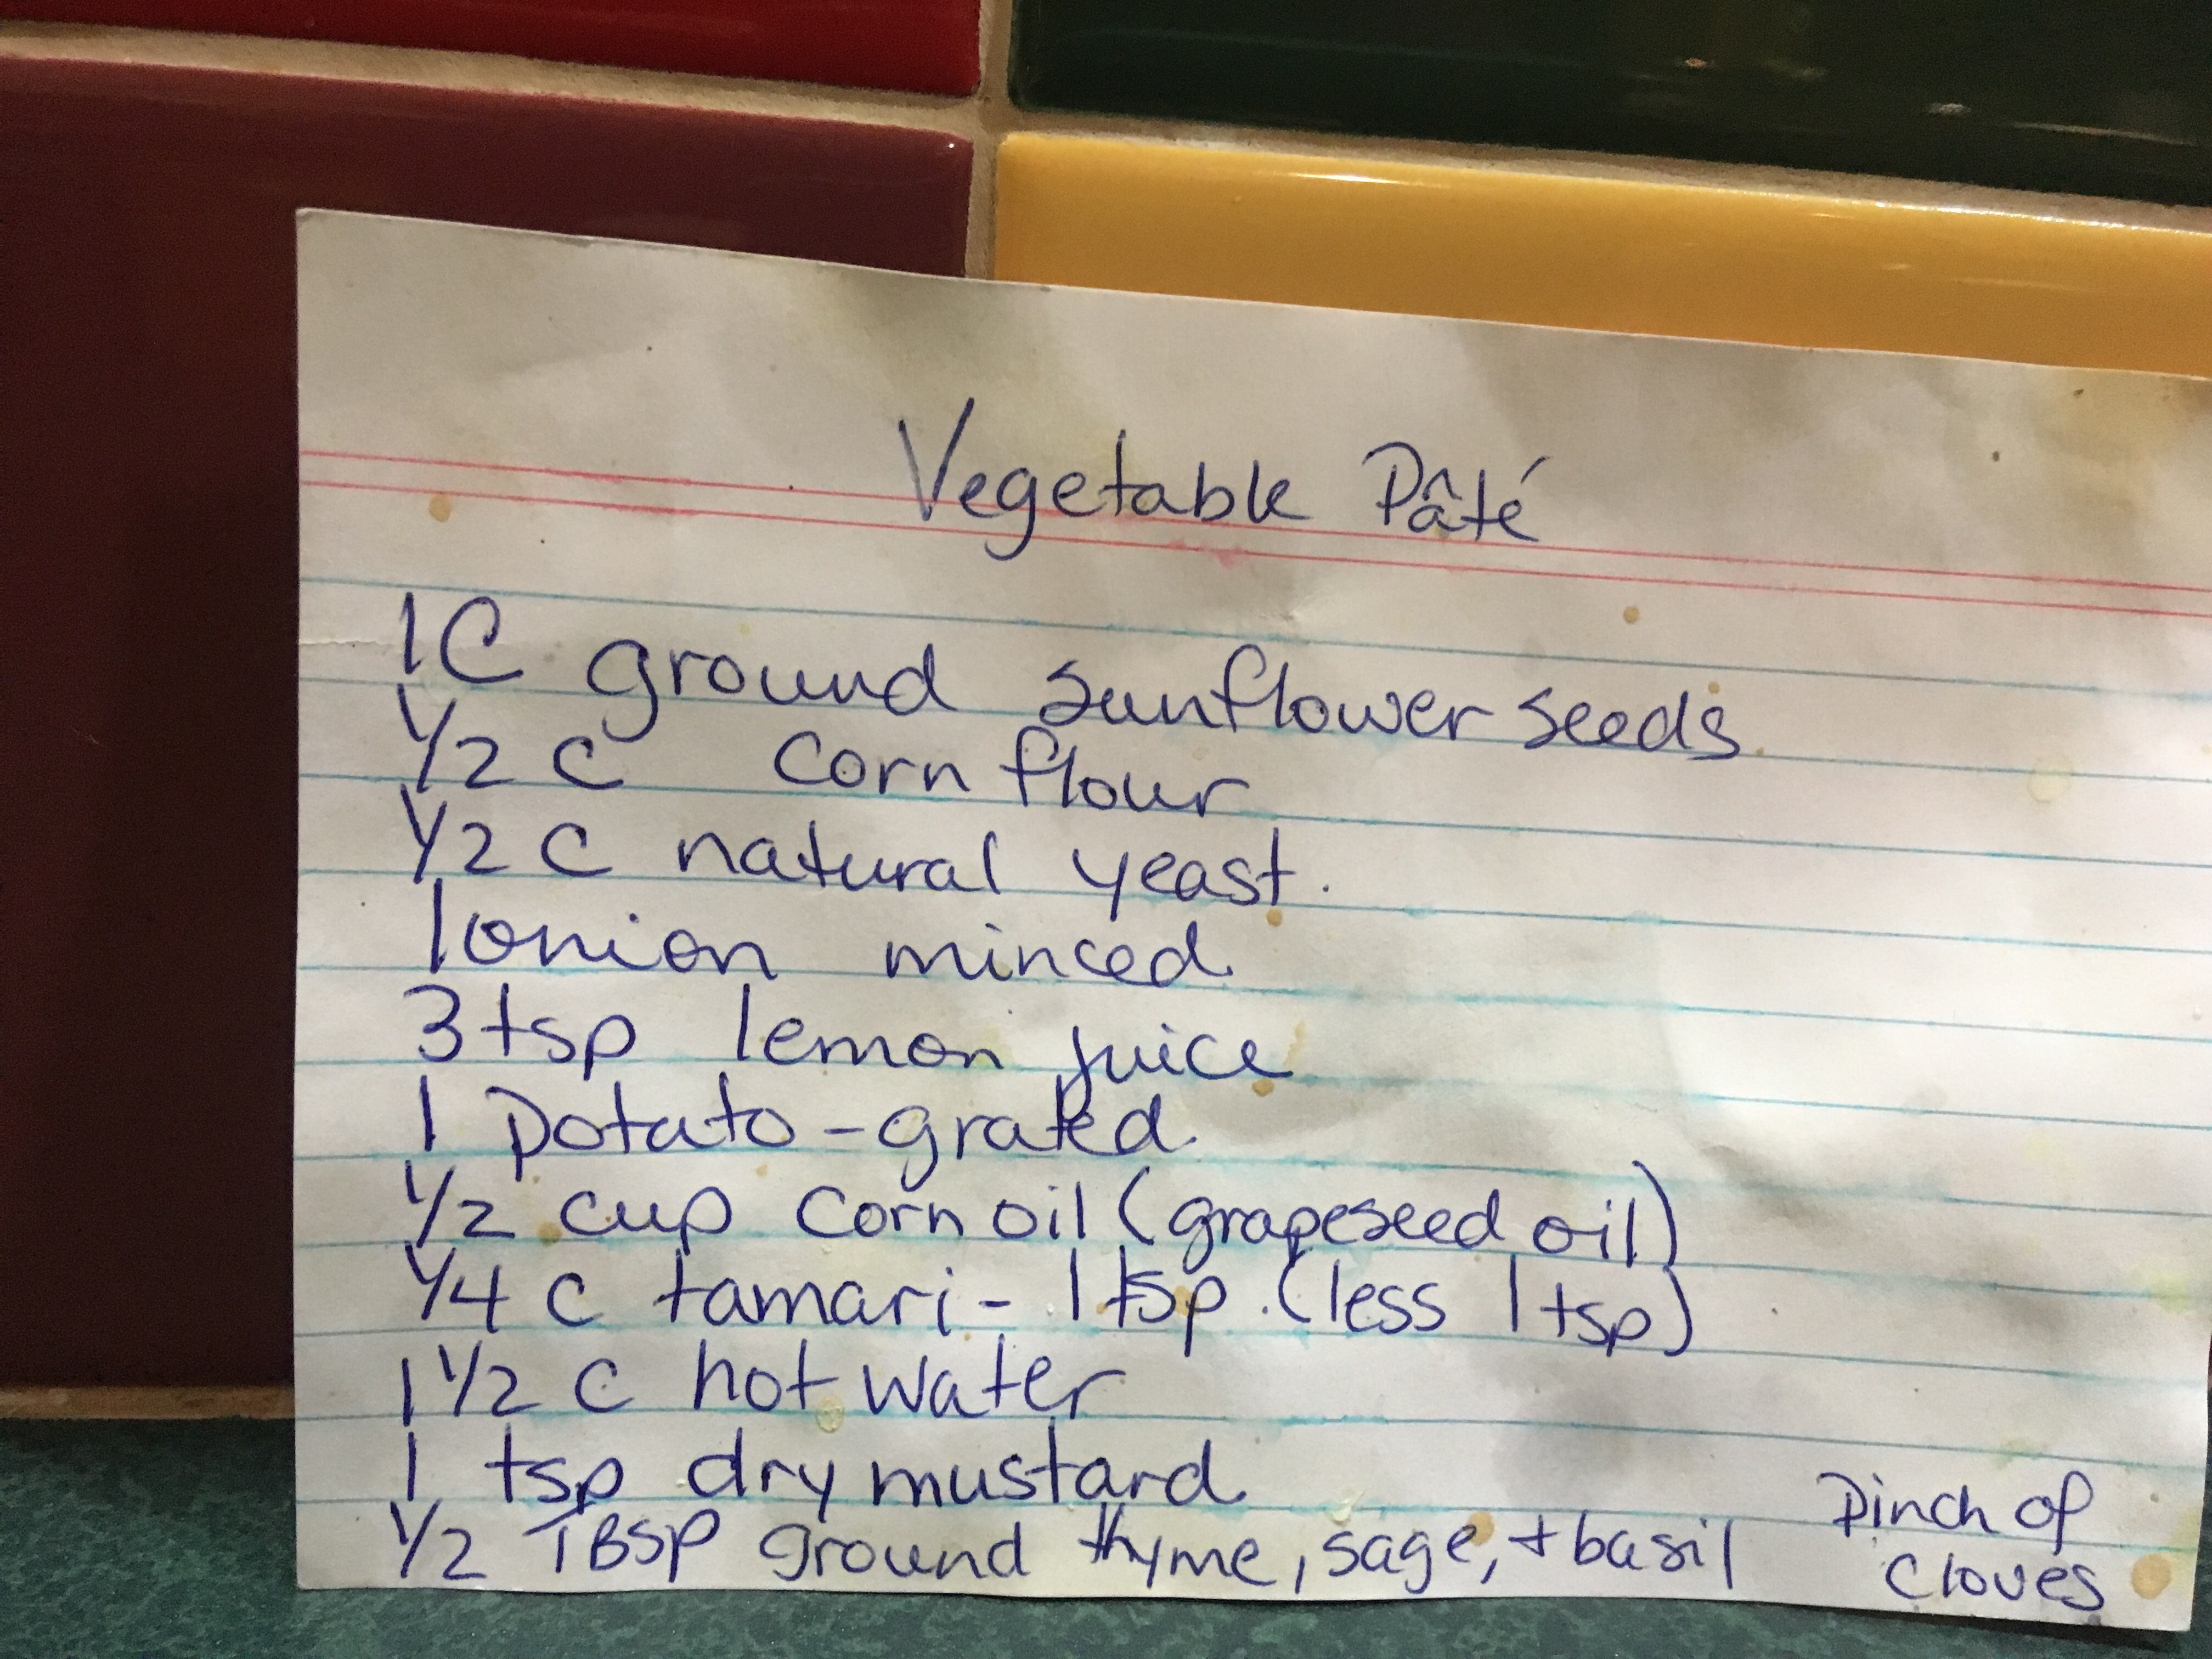 Vegetable Pâté
1C ground sunflower seeds
1/2 C corn flour
1/2 C natural yeast.
1 onion minced
3 tsp lemon juice
1 potato - grated
1/2 cup corn oil (grapeseed oil)
1/4 C tamari - 1 tsp. (less 1 tsp)
1 1/2 C hot water
1 tsp dry mustard
1/2 TBSP ground thyme, sage, + basil
Pinch of
cloves